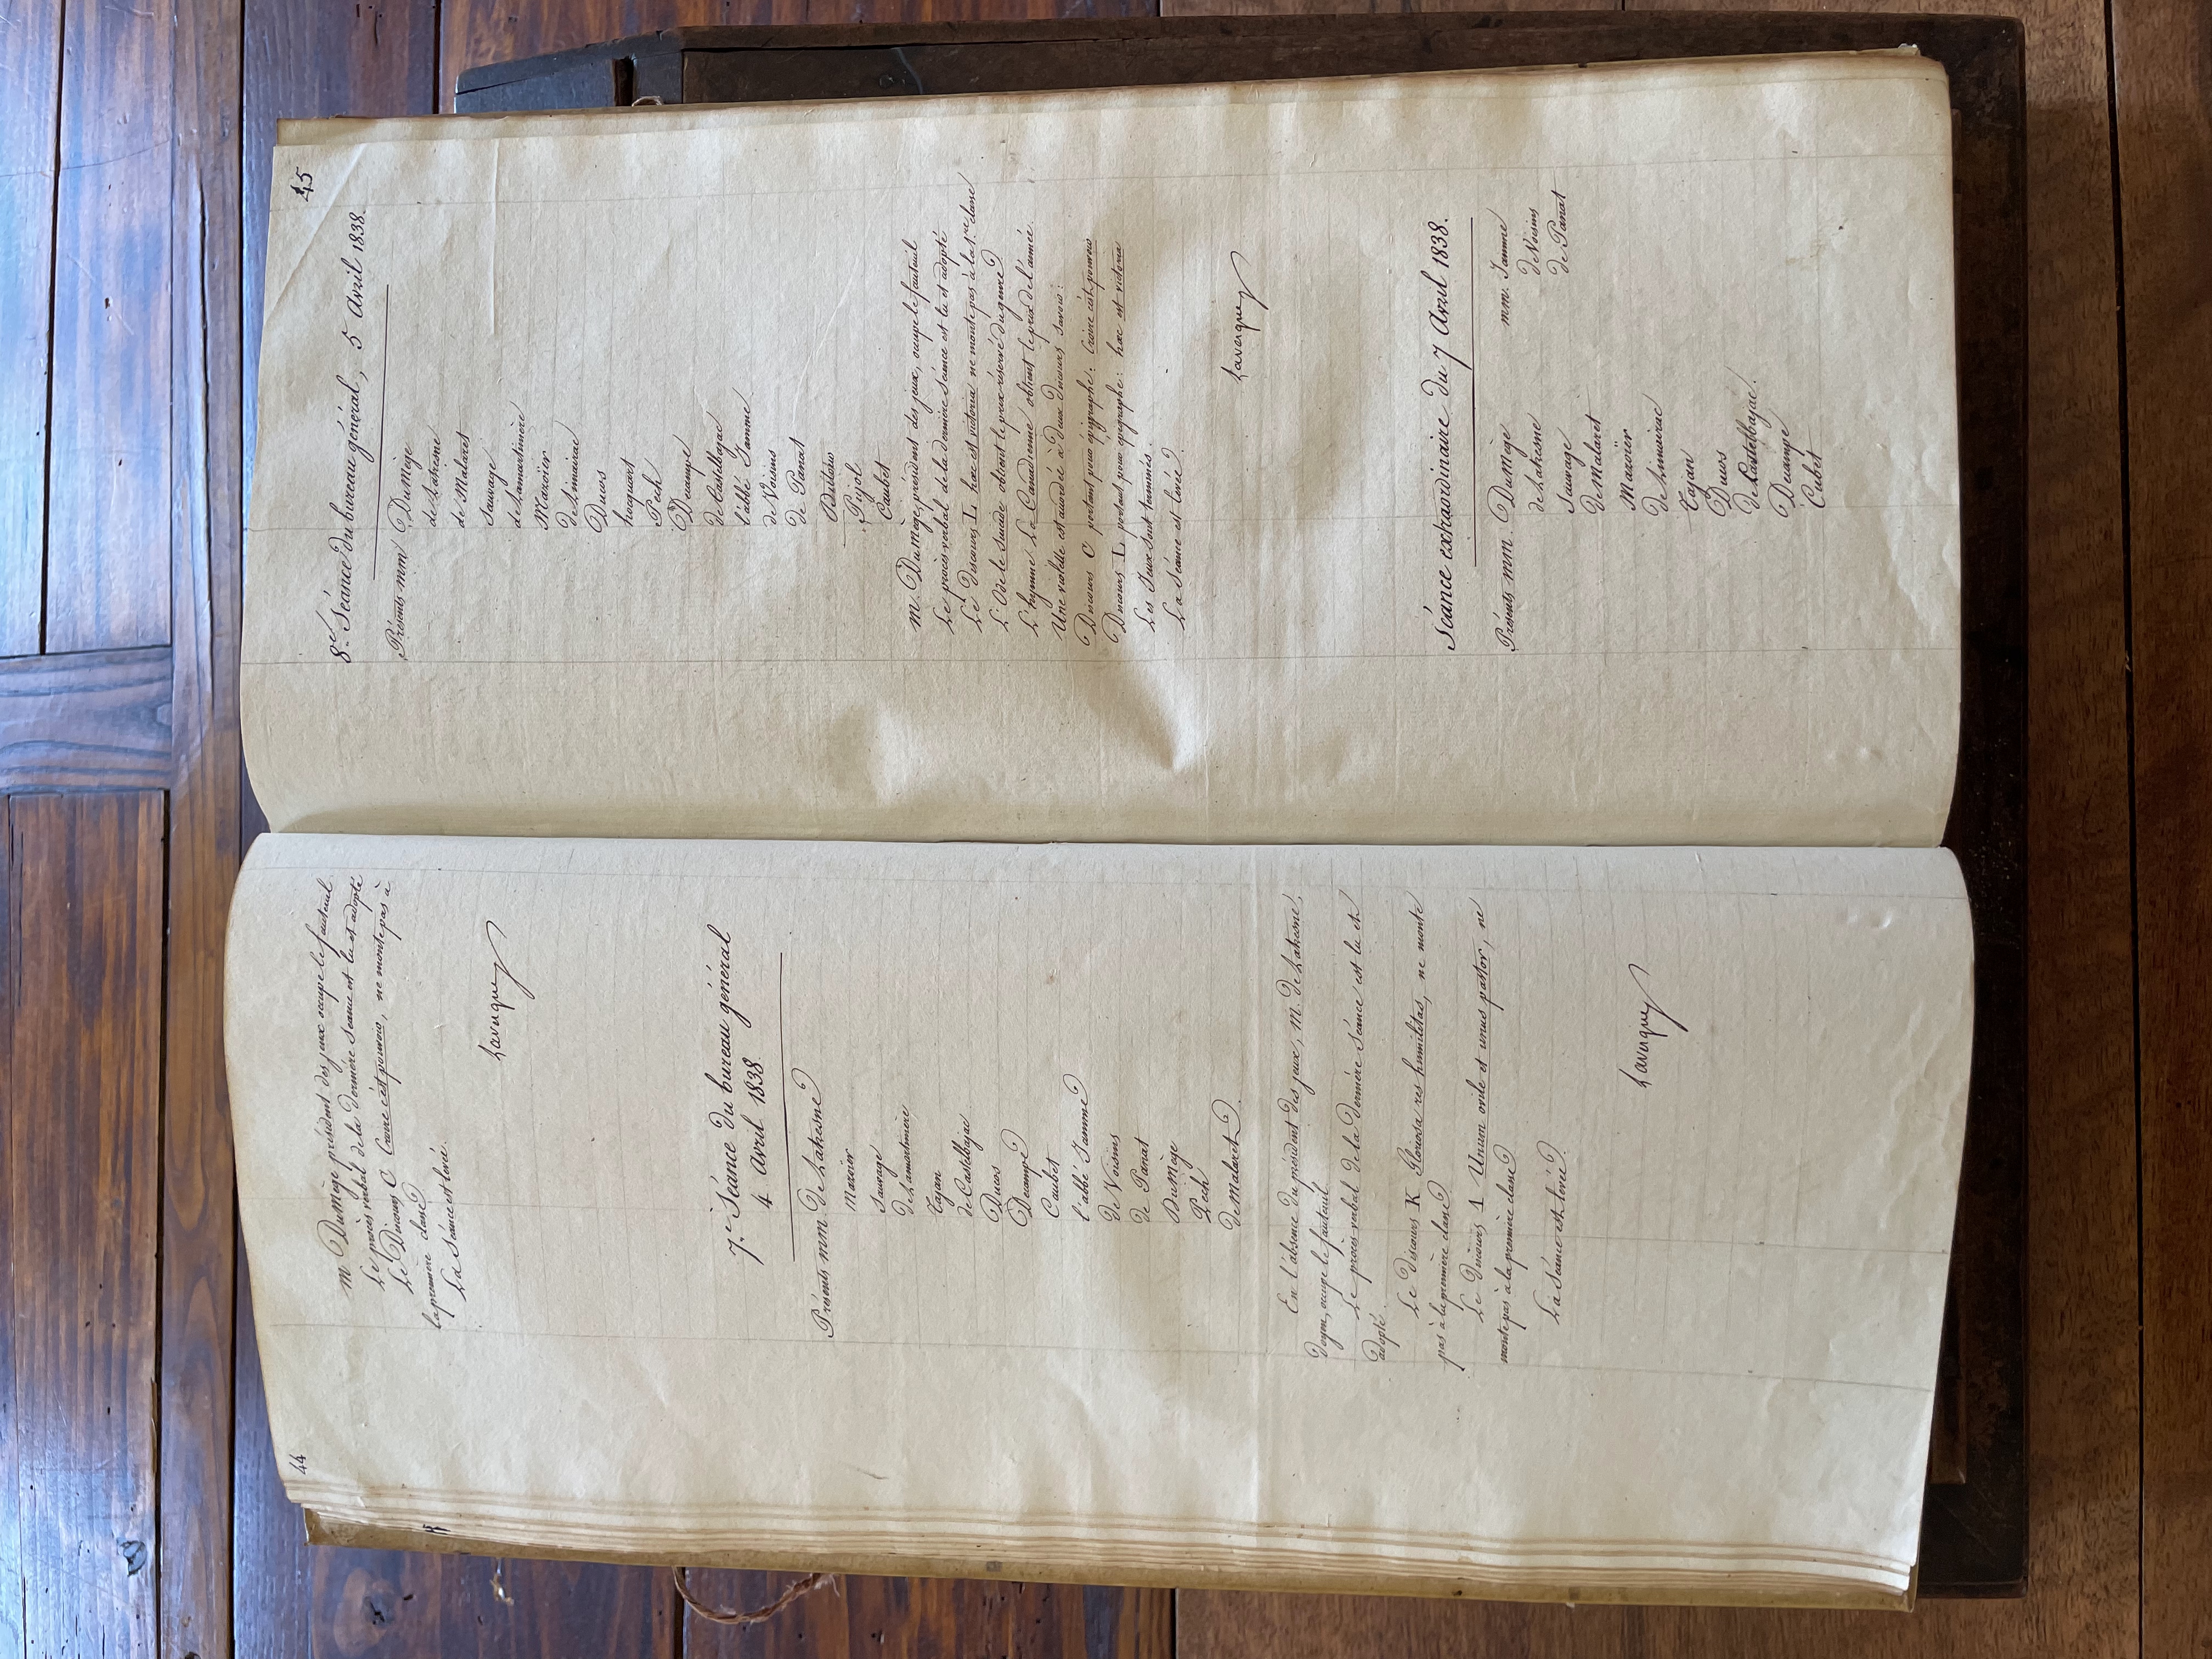 44
M Dumège président des jeux occupe le fauteuil.
Le procès verbal de la dernière séance est lu et adopté
Le Discours C Croire c'est pouvoir, ne monte pas à
la première classe
La séance est levée.
Lavergne
7e Séance du bureau général
4 avril 1838
Présents mm de Latresne
Mazoier
Sauvage
de Lamartinière
Tajan
de Castelbajac
Ducos
Decampe
Caubet
l'abbé Jamme
de Voisins
de Panat
DuMège
Pech
de Malaret
En l'absence du président des jeux, M. de Latresne,
doyen, occupe le fauteuil.
Le procès verbal de la dernière séance est lu et
adopté.
Le Discours K Gloriosa res humilitas, ne monte
pas à la première classe
Le Discours 1 Unum ovile et unus pastor, ne
monte pas à la première classe
La séance est levée.
Lavergne
45
8e Séance du bureau général, 5 Avril 1838.
Présents mm DuMège
de Latresne
de Malaret
Sauvage
de Lamartinière
Mazoïer
de Limairac
Ducos
hocquart
Pech
Decampe
de Castelbajac
l'abbé Jamme
de Voisins
de Panat
Pujol
Caubet
M. DuMège, président des jeux, occupe le fauteuil
Le procès verbal de la dernière séance est lu et adopté
Le Discours L hæc est victoria ne monte pas à la 1re classe
L'Ode le Suicide obtient le prix réservé du genre
L'hymne La Canadienne obtient le prix de l'année.
Une violette est accordée à deux Discours savoir :
Discours C portant pour épigraphe : Croire c'est pouvoir
Discours L portant pour épigraphe : hæc est victoria
Les Jeux sont terminés.
La Séance est levée.
Lavergne
Séance extraordinaire du 7 Avril 1838.
Présents mm. DuMège mm. Jamme
de Latresne de Voisins
Sauvage de Panat
de Malaret
Mazoïer
de Limairac
Tajan
Ducos
de Castelbajac.
Decampe
Caubet